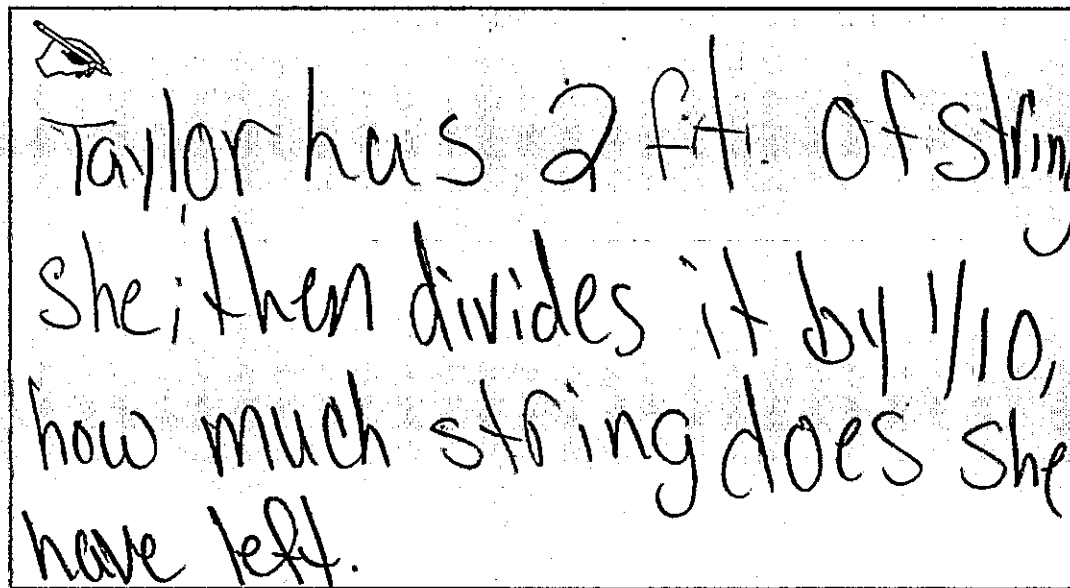 Taylor has 2 ft. of string
she; then divides it by 1/10,
how much string does she
have left.